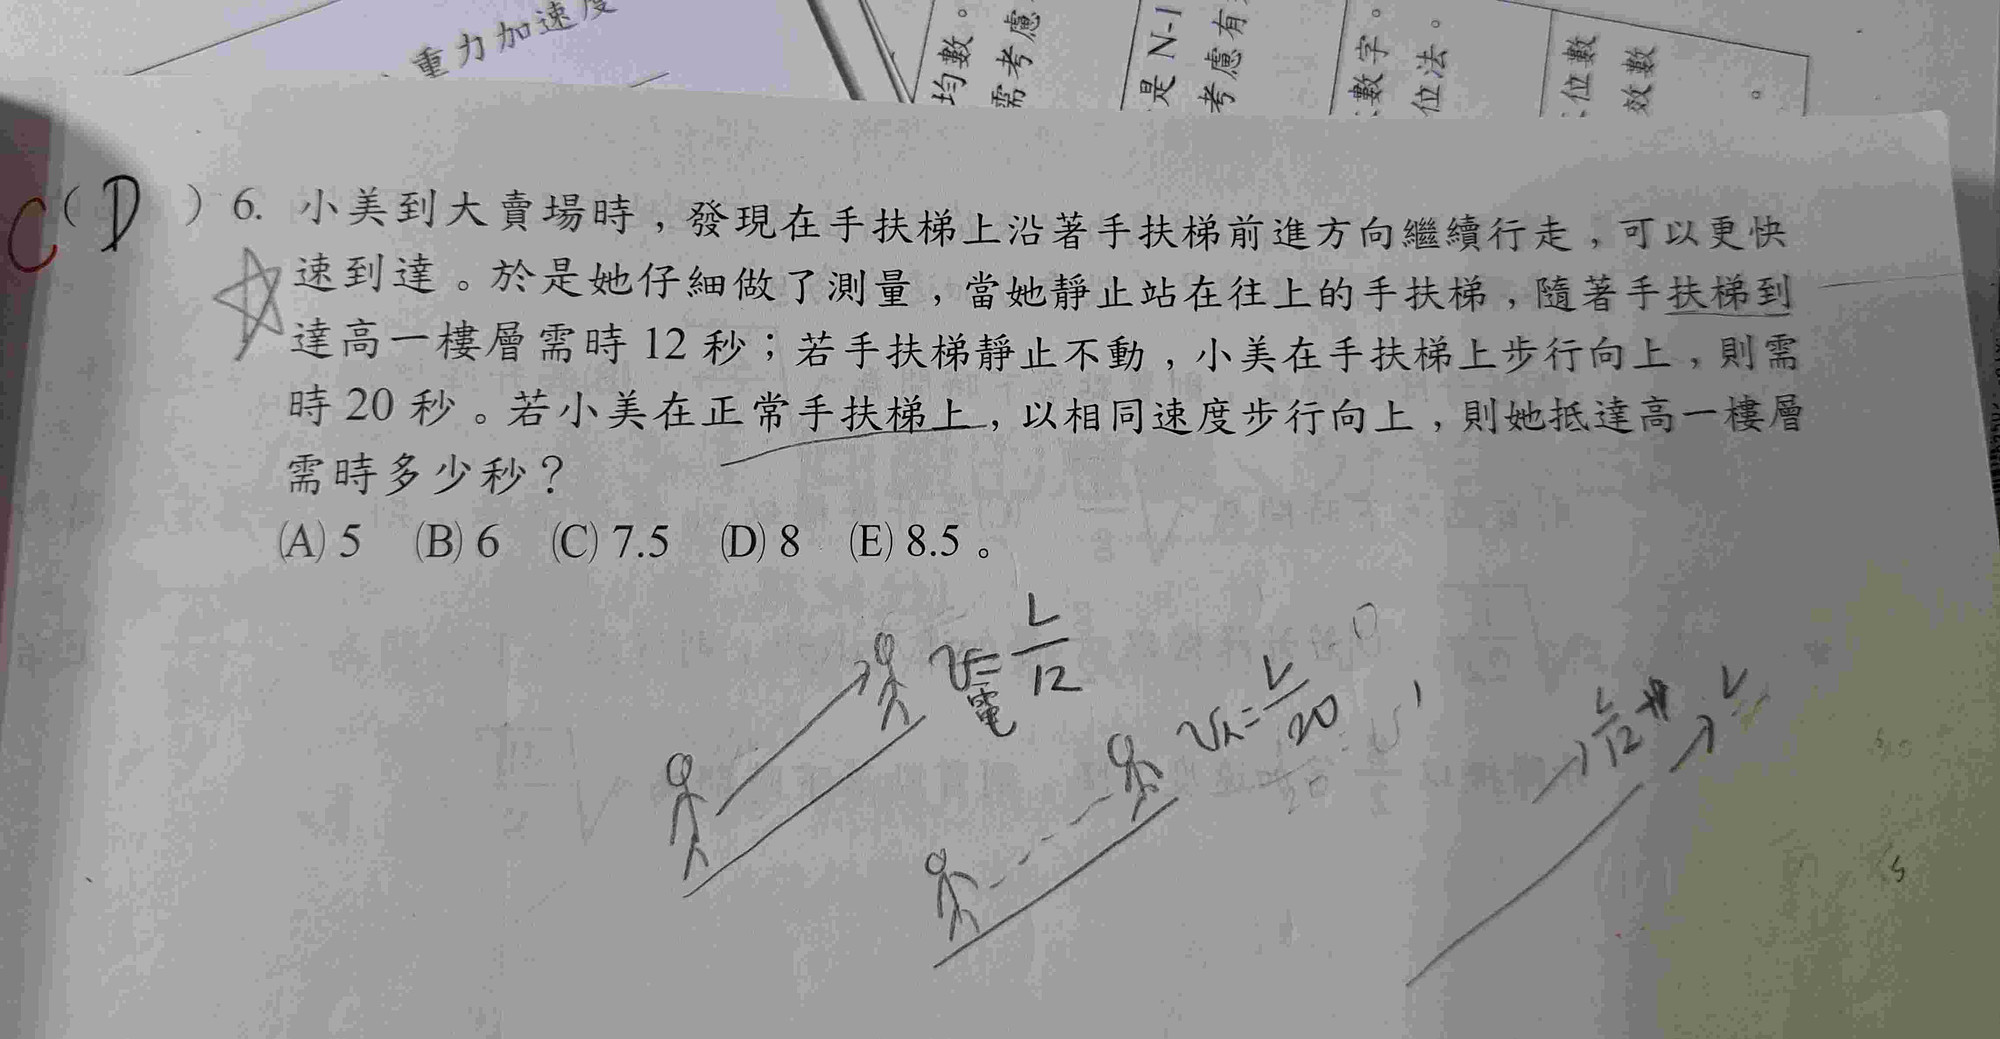 重力加速度
均數。
需考慮
是 N-1
考慮有
數字。
位法。
位數
效數
。
C ( D ) 6. 小美到大賣場時，發現在手扶梯上沿著手扶梯前進方向繼續行走，可以更快
速到達。於是她仔細做了測量，當她靜止站在往上的手扶梯，隨著手扶梯到
達高一樓層需時 12 秒；若手扶梯靜止不動，小美在手扶梯上步行向上，則需
時 20 秒。若小美在正常手扶梯上，以相同速度步行向上，則她抵達高一樓層
需時多少秒？
(A) 5 (B) 6 (C) 7.5 (D) 8 (E) 8.5 。
V電=L/12
V人=L/20
L/12
L